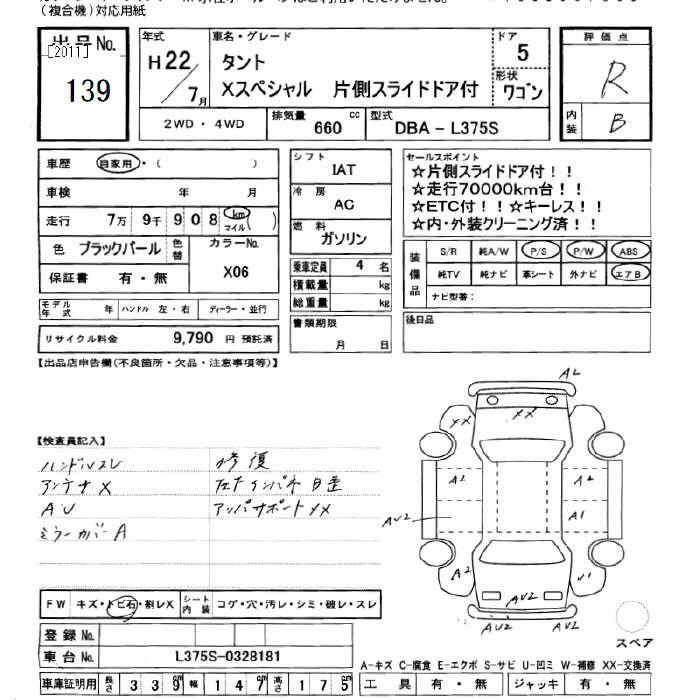 (複合機)対応用紙
出品No.
[2011]
139
年式
H22/7月
車名・グレード
タント
Xスペシャル 片側スライドドア付
ドア
5
形状
ワゴン
評価点
R
内装
B
2WD・4WD
排気量
660 cc
型式
DBA-L375S
車歴 自家用・( )
車検 年 月
走行 7万 9千 908 km マイル ( )
色 ブラックパール 色替
カラーNo.
X06
保証書 有・無
モデル年式 年 ハンドル 左・右 ディーラー・並行
リサイクル料金 9,790 円 預託済
シフト
IAT
冷房
AC
燃料
ガソリン
乗車定員 4 名
積載量 kg
総重量 kg
書類期限
月 日
セールスポイント
☆片側スライドドア付!!
☆走行70000km台!!
☆ETC付!!☆キーレス!!
☆内・外装クリーニング済!!
装備品
S/R 純A/W P/S P/W ABS
純TV 純ナビ 革シート 外ナビ エアB
ナビ型番:
後日品
【出品店申告欄(不良箇所・欠品・注意事項等)】
【検査員記入】
ハンドルスレ
アンテナX
AU
ミラーカバーA
修復
アッパサポートXX
AL
XX
XX
A2
A2
AU2
A1
A2
U1
AU2
AU2
AU2
スペア
FW キズ・トビ石・割レX
シート内装 コゲ・穴・汚レ・シミ・破レ・スレ
登録No.
車台No. L375S-0328181
車庫証明用 長さ 339cm 幅 147cm 高さ 175cm
A-キズ C-腐食 E-エクボ S-サビ U-凹ミ W-補修 XX-交換済
工具 有・無 ジャッキ 有・無